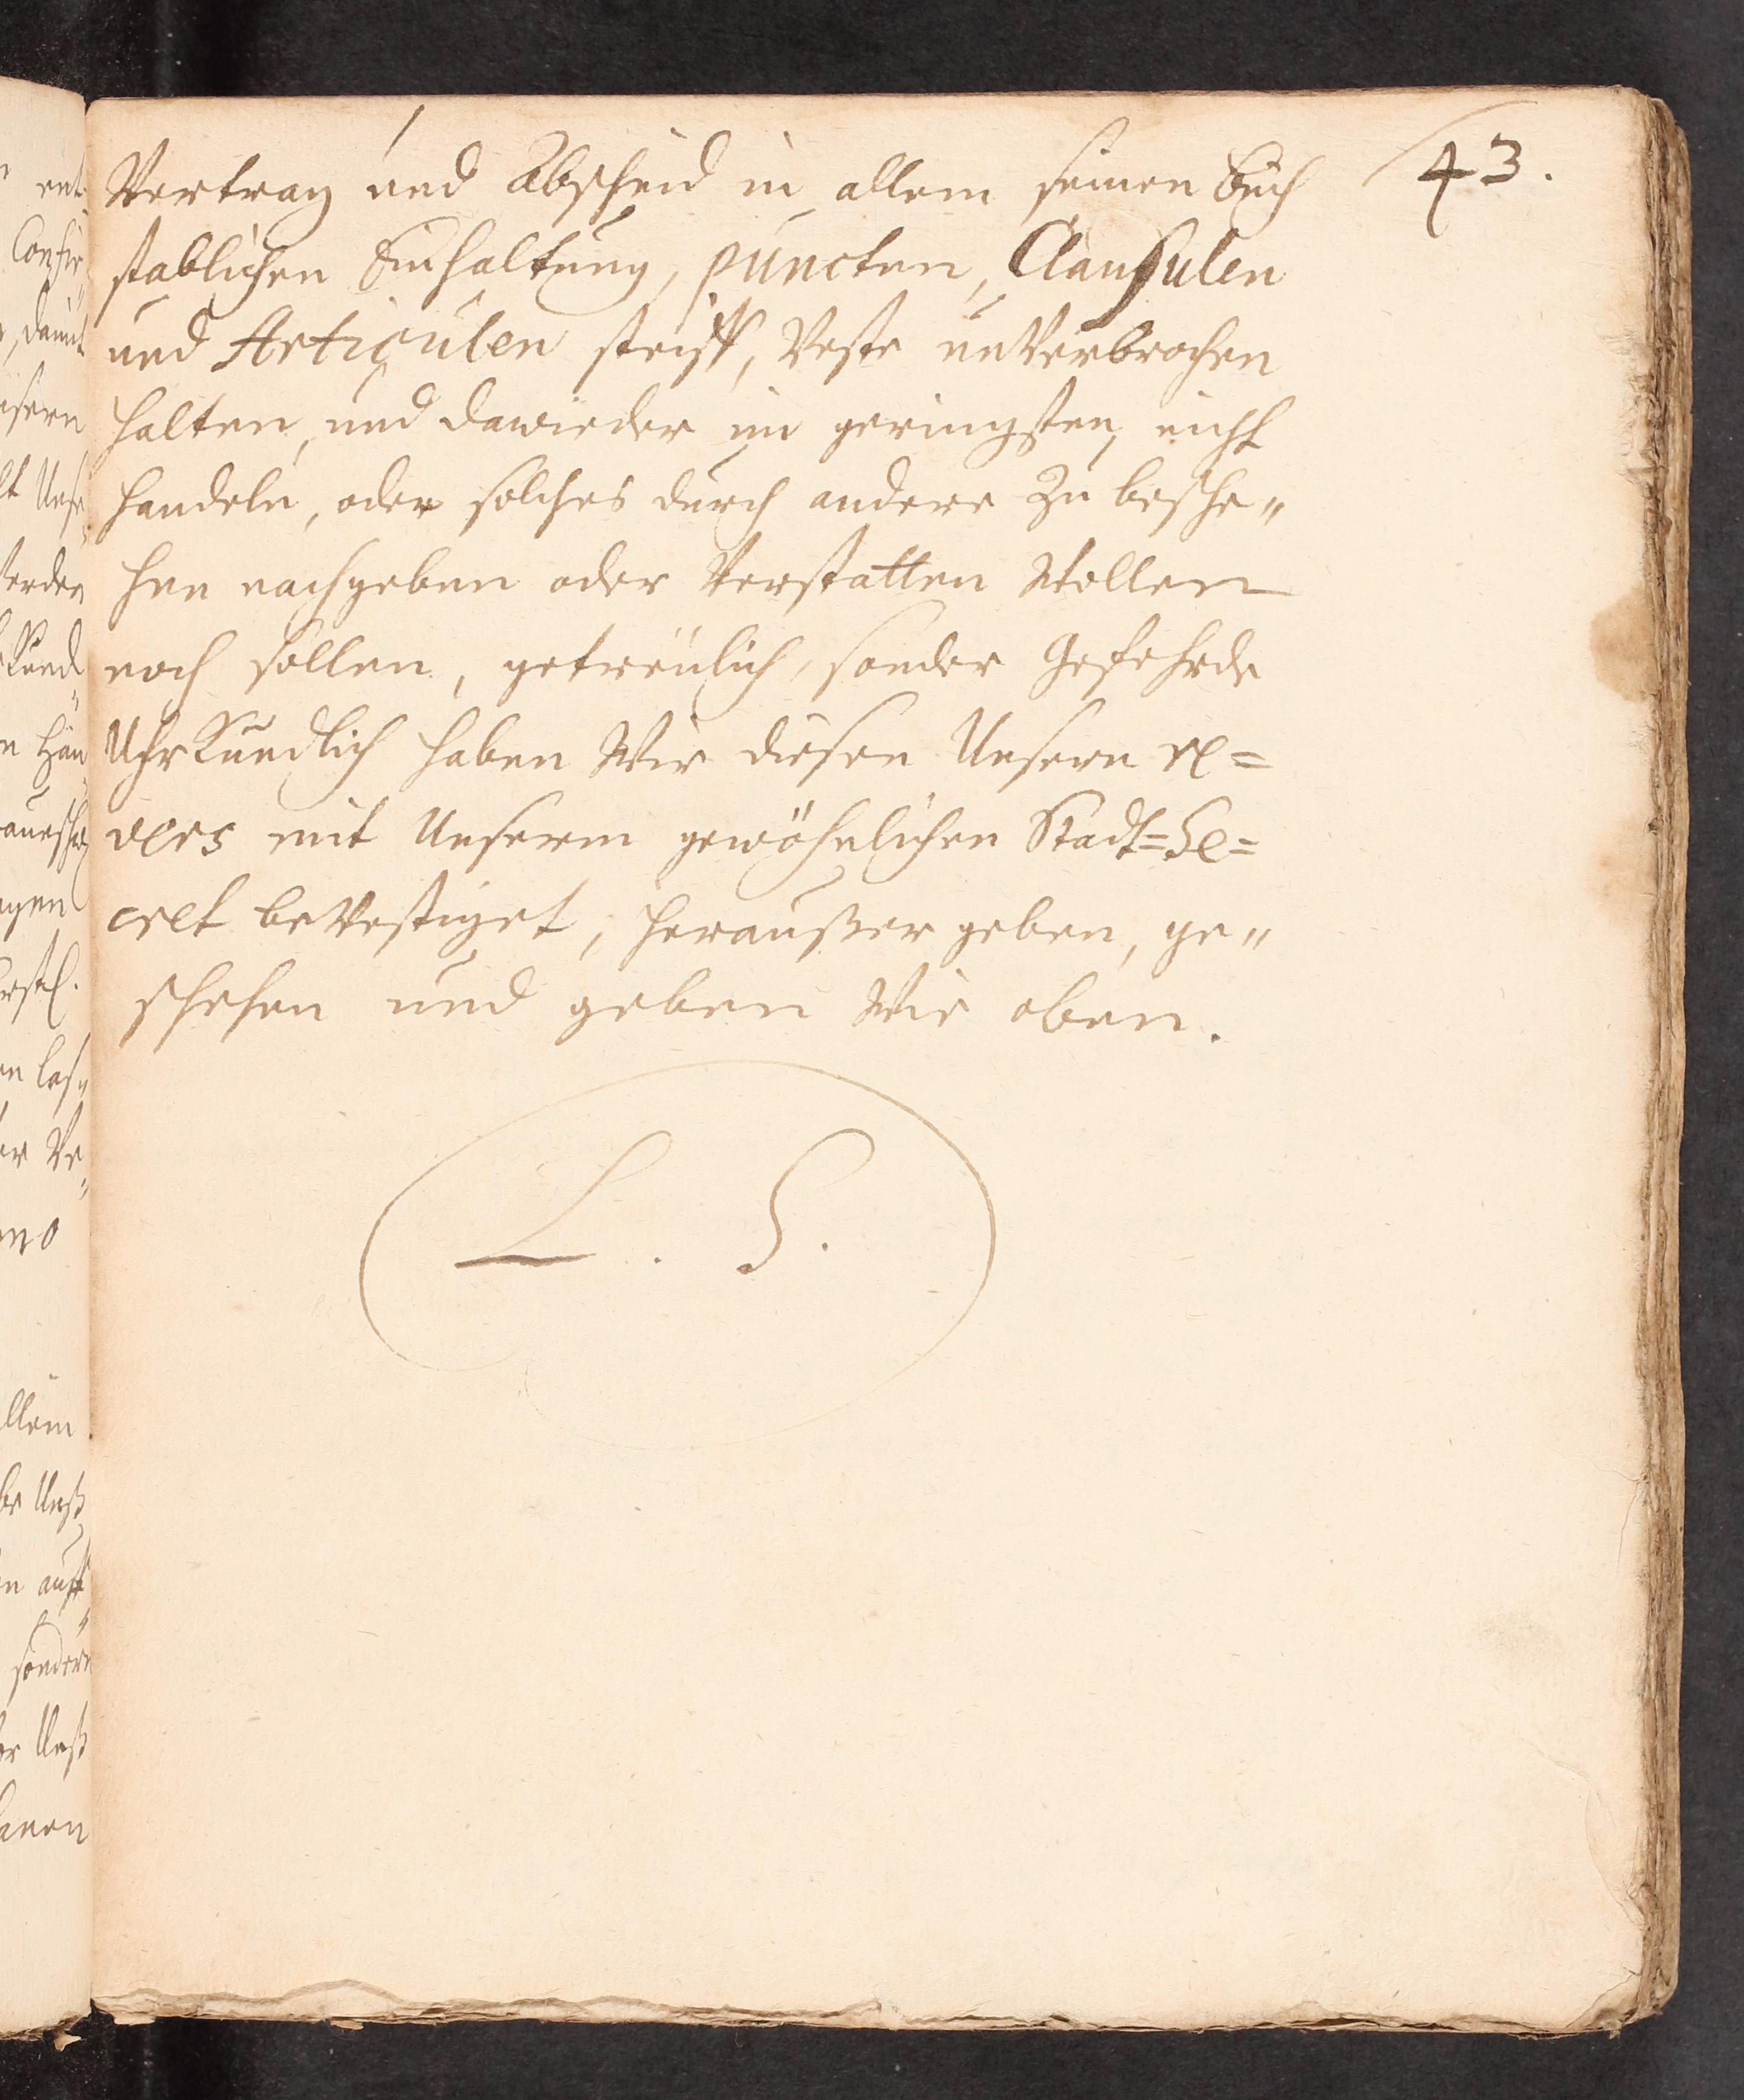 43.
Vertrag und Abscheid in allem seinen Buch
stablichen Einhaltung, puncten, Clausulen
und Articulen steiff, Veste unVerbrochen
halten, und dawieder im geringsten nicht
handeln, oder solches durch andere Zu besche„
hen nachgeben oder Verstatten Wollen
noch sollen, getreülich, sonder Gefehrde
UhrKundlich haben Wir diesen Unsern re=
vers mit Unserm gewöhnlichen Stadt=Se=
cret beVestiget, heraußer geben, ge„
schehen und geben Wie oben.
L. S.